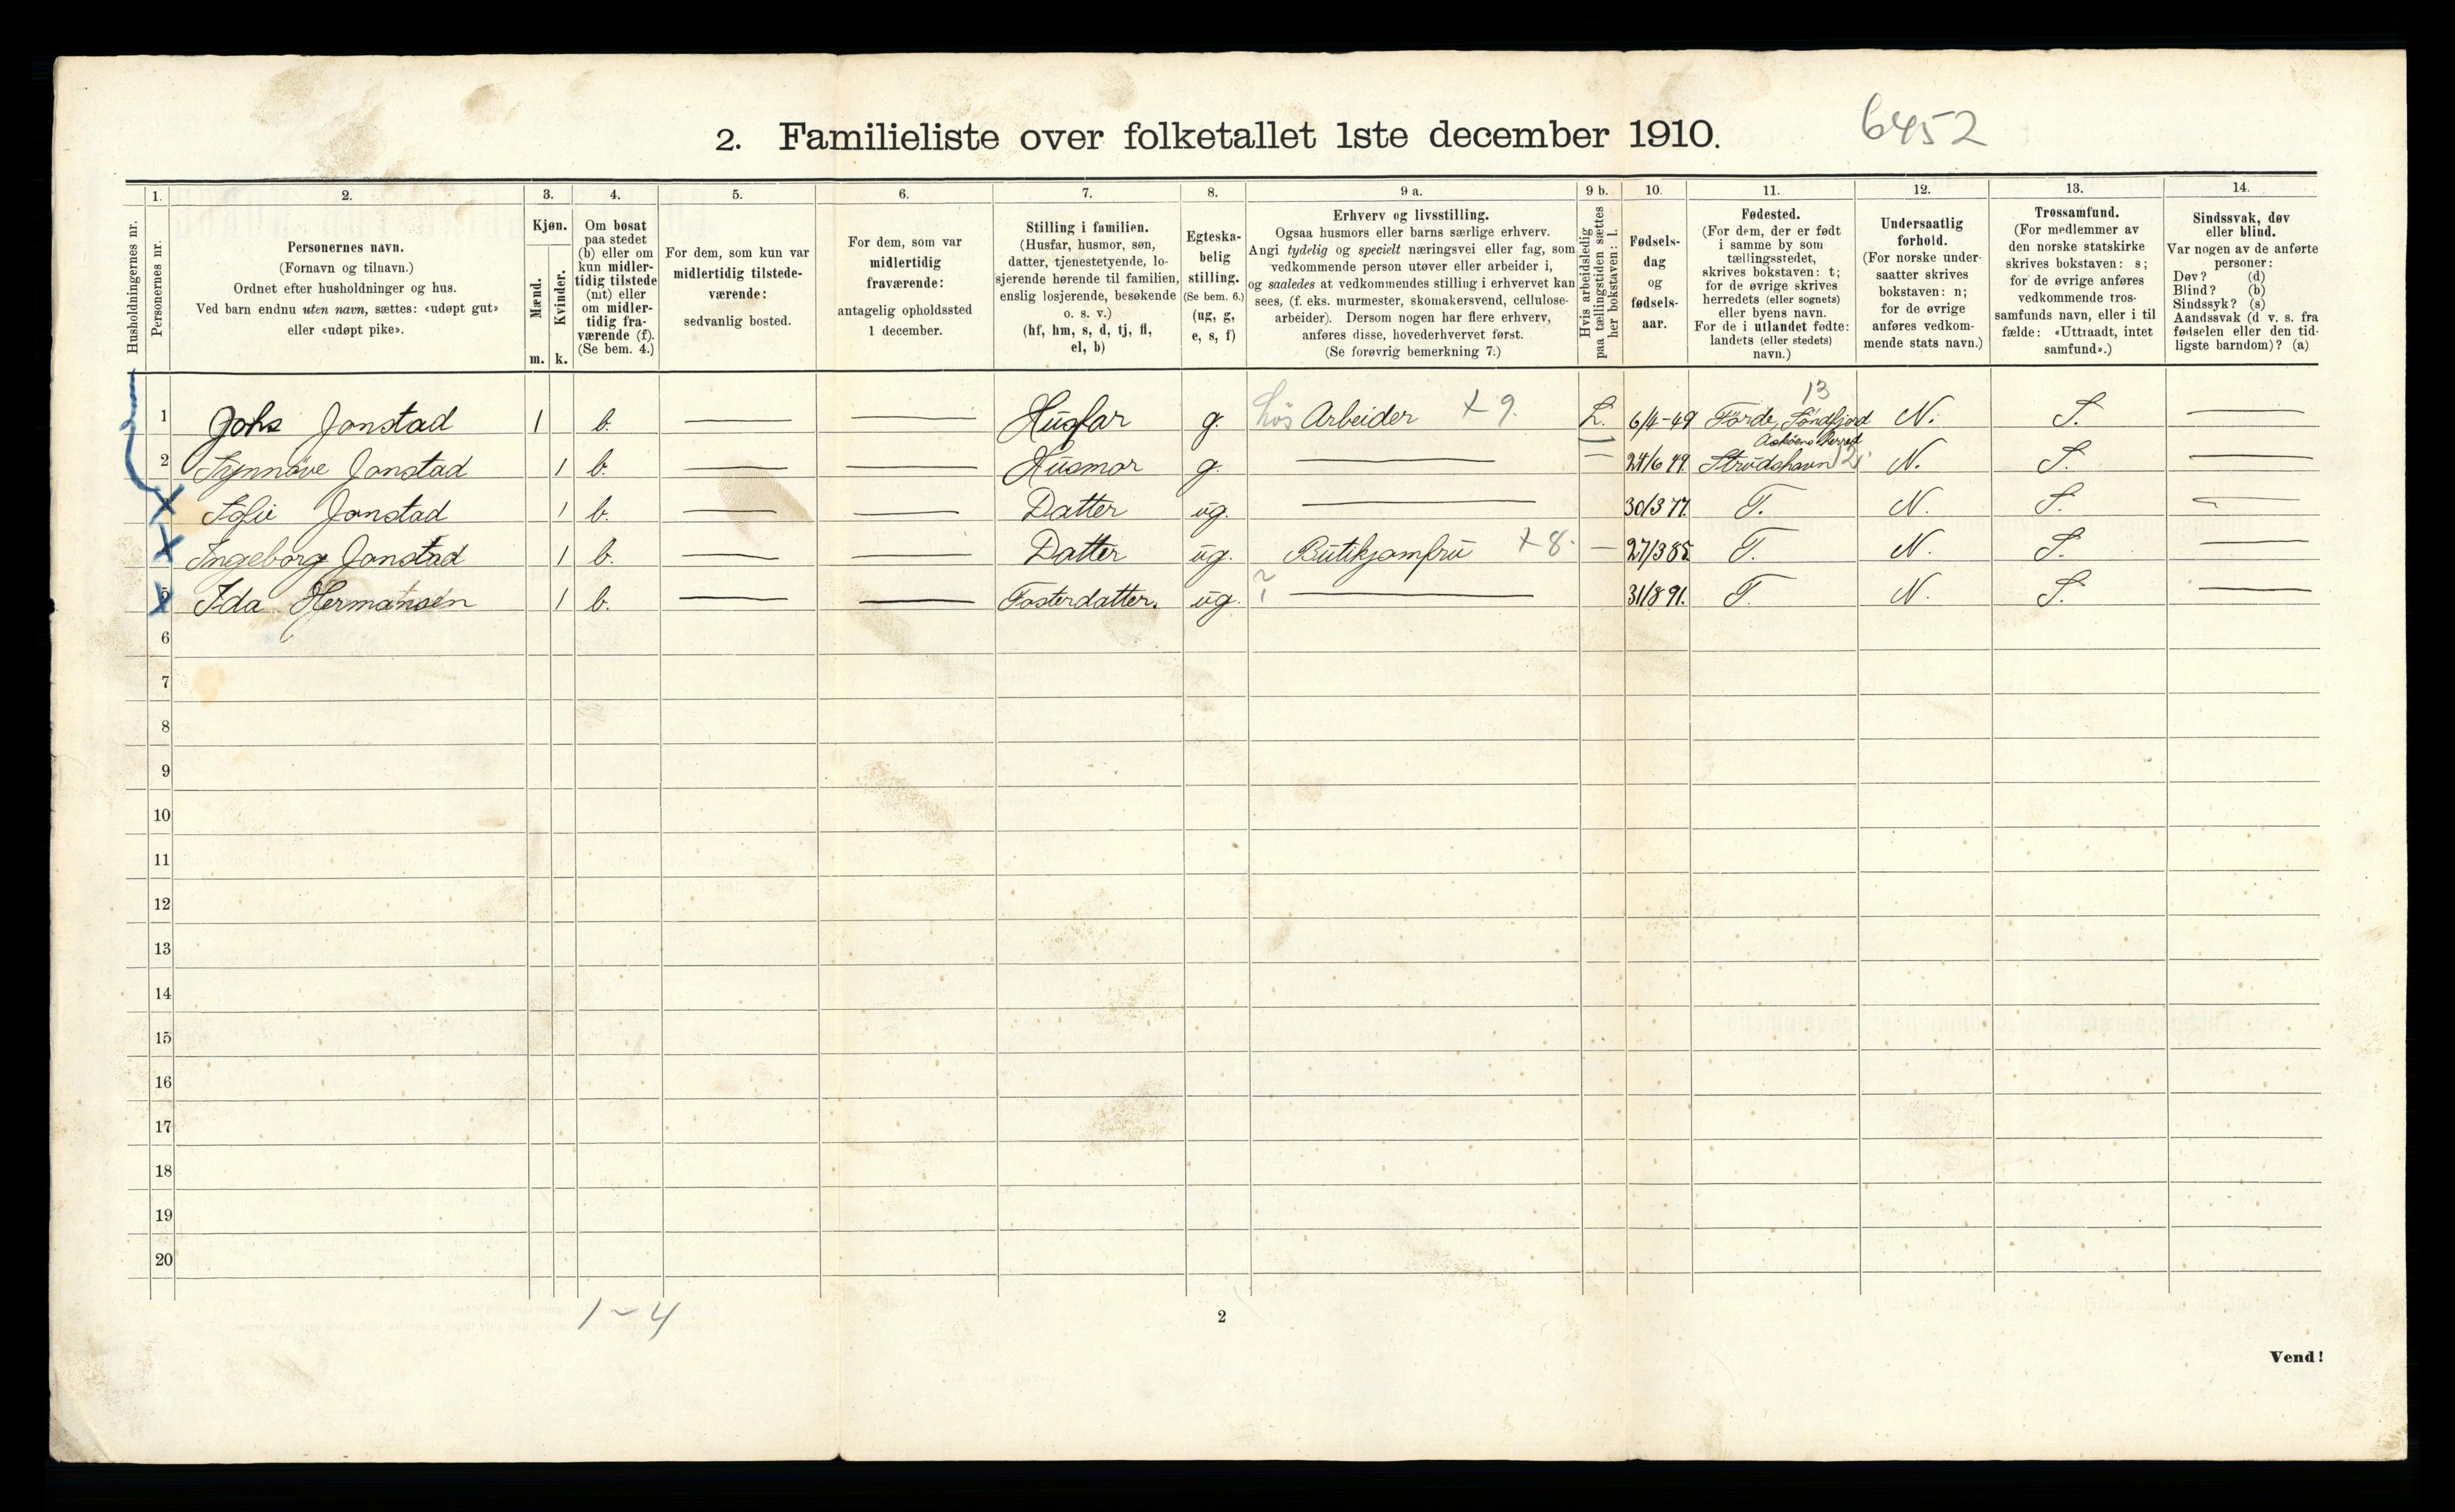 6452
2. Familieliste over folketallet 1ste december 1910.
1. 2. 3. 4. 5. 6. 7. 8. 9 a. 9 b. 10. 11. 12. 13. 14.
Husholdningernes nr.
Personernes nr.
Personernes navn.
(Fornavn og tilnavn.)
Ordnet efter husholdninger og hus.
Ved barn endnu uten navn, sættes: «udøpt gut»
eller «udøpt pike».
Kjøn.
Mænd.
Kvinder.
m. k.
Om bosat
paa stedet
(b) eller om
kun midler-
tidig tilstede
(mt) eller
om midler-
tidig fra-
værende (f).
(Se bem. 4.)
For dem, som kun var
midlertidig tilstede-
værende:
sedvanlig bosted.
For dem, som var
midlertidig
fraværende:
antagelig opholdssted
1 december.
Stilling i familien.
(Husfar, husmor, søn,
datter, tjenestetyende, lo-
sjerende hørende til familien,
enslig losjerende, besøkende
o. s. v.)
(hf, hm, s, d, tj, fl,
el, b)
Egteska-
belig
stilling.
(Se bem. 6.)
(ug, g,
e, s, f)
Erhverv og livsstilling.
Ogsaa husmors eller barns særlige erhverv.
Angi tydelig og specielt næringsvei eller fag, som
vedkommende person utøver eller arbeider i,
og saaledes at vedkommendes stilling i erhvervet kan
sees, (f. eks. murmester, skomakersvend, cellulose-
arbeider). Dersom nogen har flere erhverv,
anføres disse, hovederhvervet først.
(Se forøvrig bemerkning 7.)
Hvis arbeidsledig
paa tællingstiden sættes
her bokstaven: l.
Fødsels-
dag
og
fødsels-
aar.
Fødested.
(For dem, der er født
i samme by som
tællingsstedet,
skrives bokstaven: t;
for de øvrige skrives
herredets (eller sognets)
eller byens navn.
For de i utlandet fødte:
landets (eller stedets)
navn.)
Undersaatlig
forhold.
(For norske under-
saatter skrives
bokstaven: n;
for de øvrige
anføres vedkom-
mende stats navn.)
Trossamfund.
(For medlemmer av
den norske statskirke
skrives bokstaven: s;
for de øvrige anføres
vedkommende tros-
samfunds navn, eller i til
fælde: «Uttraadt, intet
samfund».)
Sindssvak, døv
eller blind.
Var nogen av de anførte
personer:
Døv? (d)
Blind? (b)
Sindssyk? (s)
Aandssvak (d. v. s. fra
fødselen eller den tid-
ligste barndom)? (a)
13
1 Johs Jonstad 1 b. — — Husfar g. Løs Arbeider + 9. L. 6/4-49 Førde, Søndfjord N. S. —
Askøens Herred
2 Synnøve Jonstad 1 b. — — Husmor g. — — 24/6 49. Strudshavn 12. N. S. —
Sofie Jonstad 1 b. — — Datter ug. — 30/3 77. T. N. S. —
Ingeborg Jonstad 1 b. — — Datter ug. Butikjomfru + 8. — 27/3 85. T. N. S. —
5 Ida Hermansen 1 b. — — Fosterdatter. ug. ? — 31/8 91. T. N. S. —
6
7
8
9
10
11
12
13
14
15
16
17
18
19
20
1 ~ 4
2
Vend!